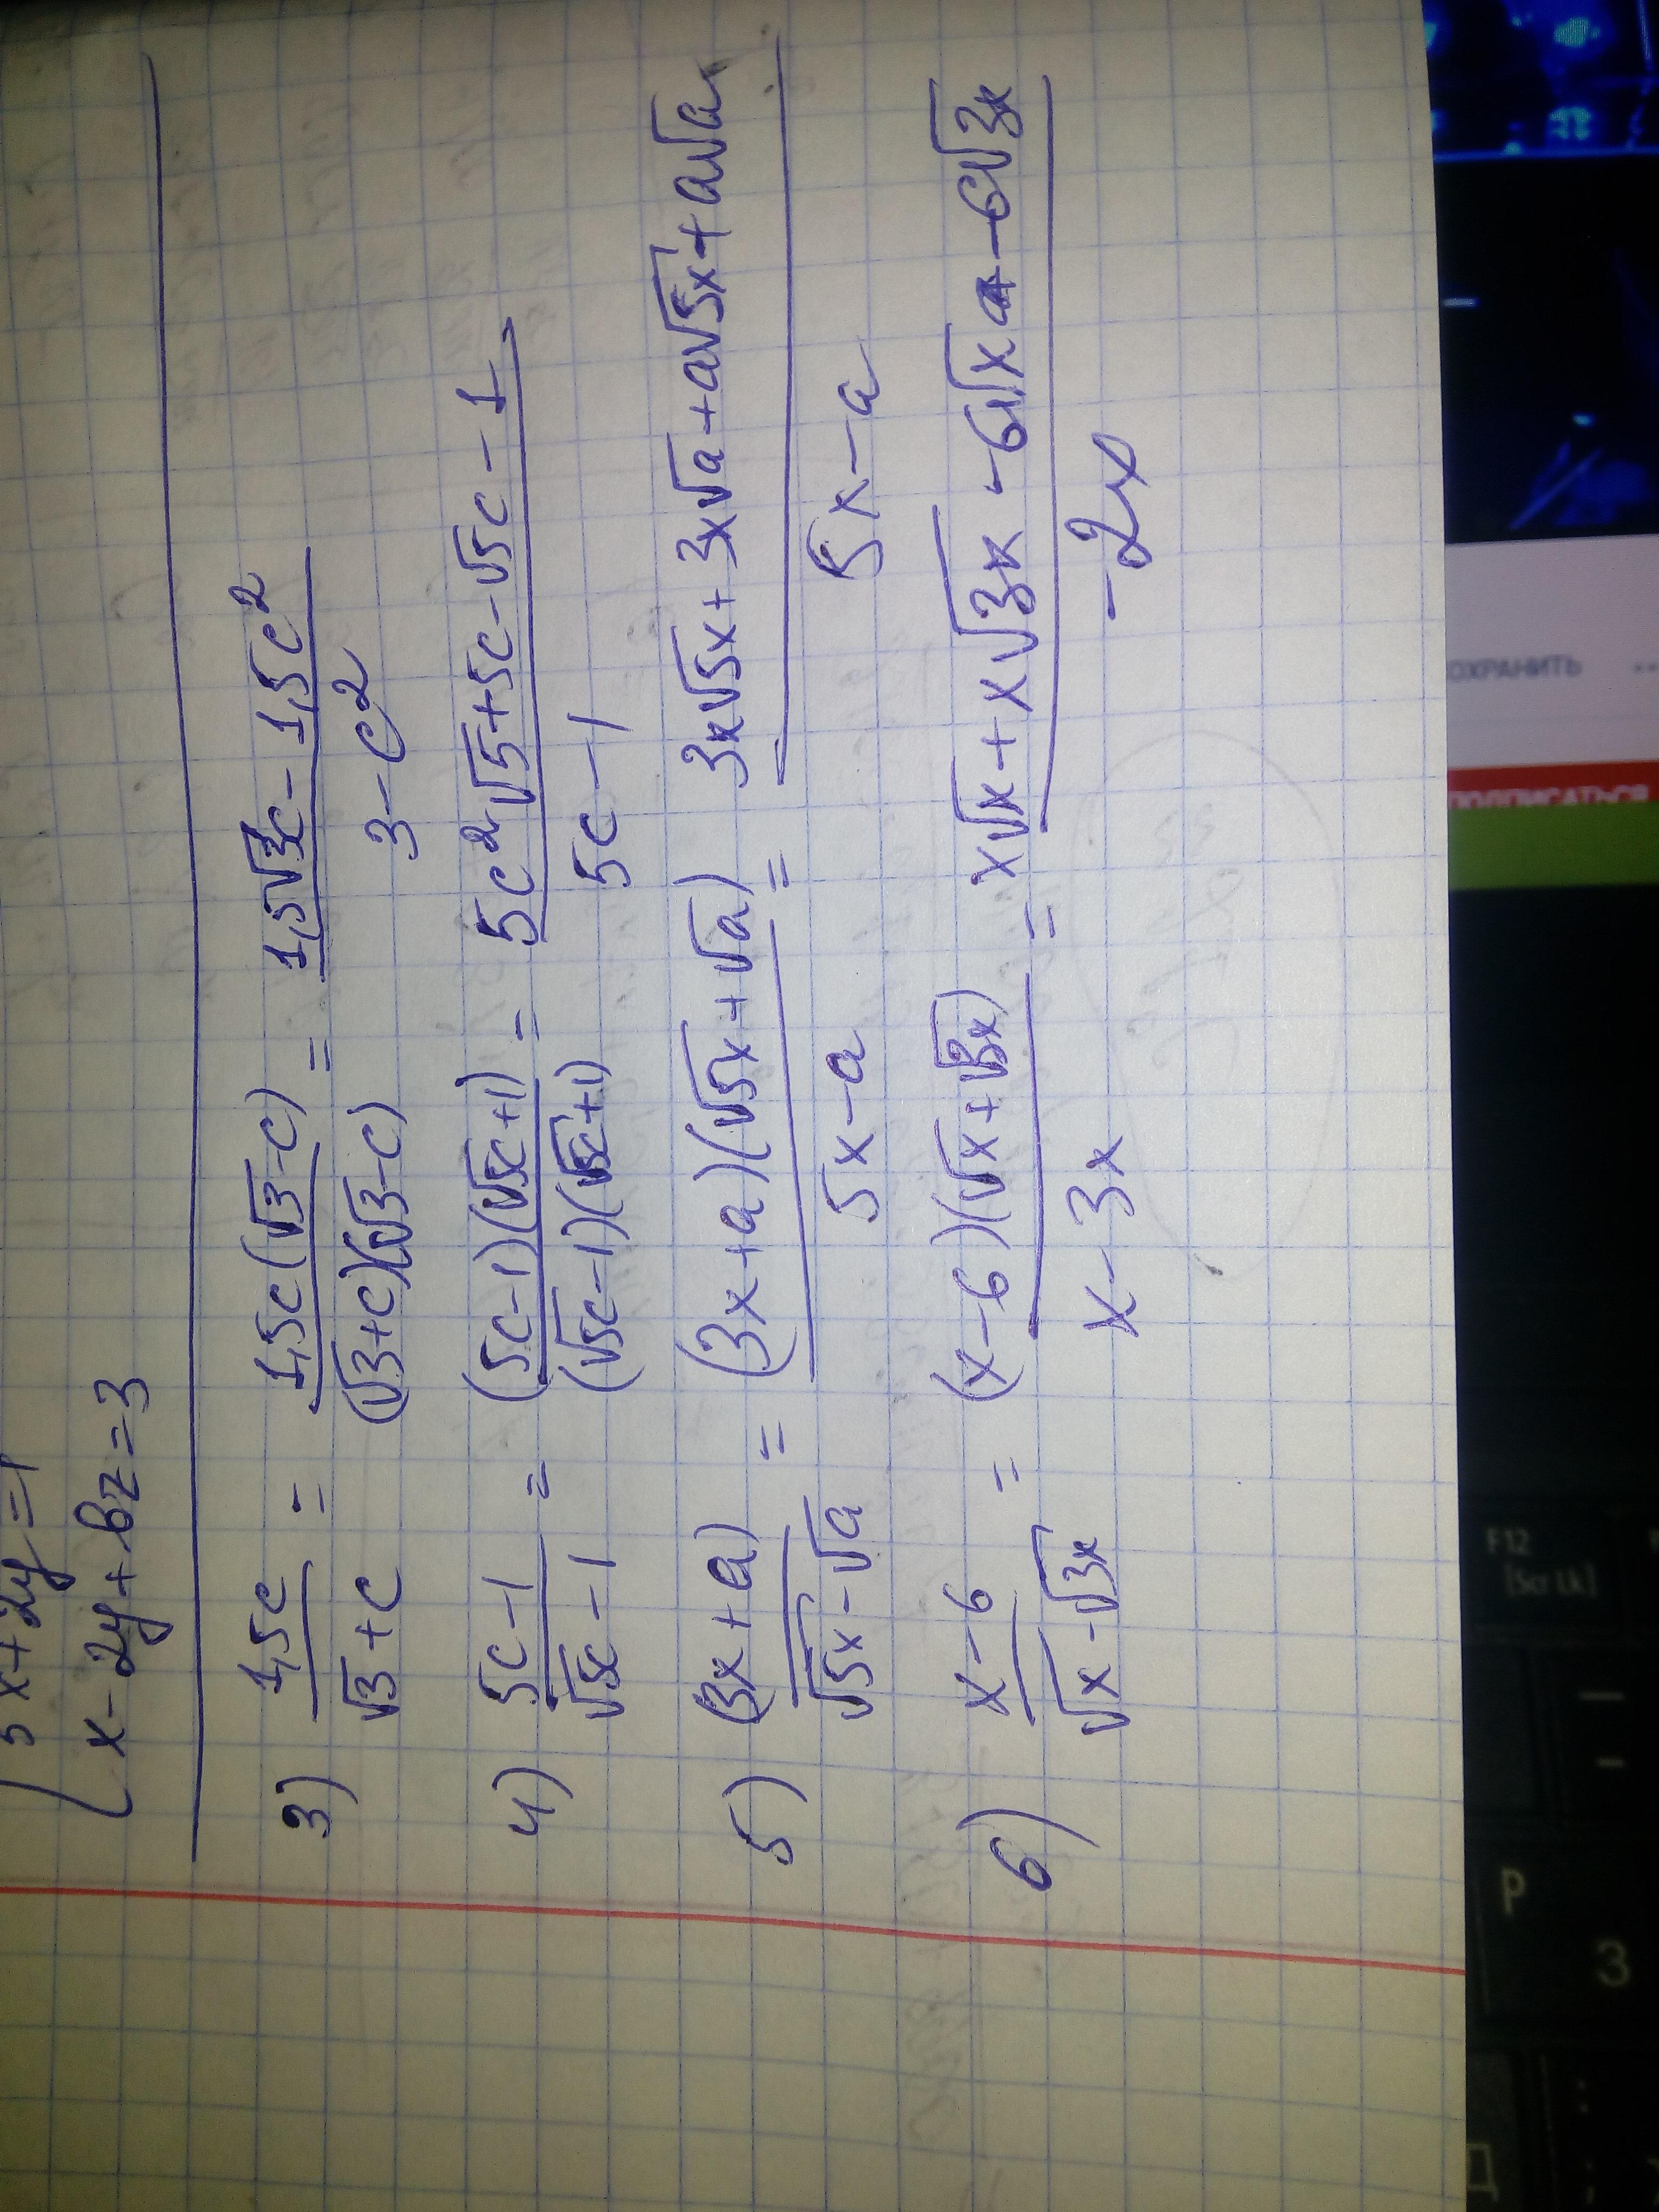 5x+2y=1
x-2y+bz=3
3) 1,5c/(√3+c) = 1,5c(√3-c)/((√3+c)(√3-c)) = (1,5√3c-1,5c²)/(3-c²)
4) (5c-1)/(√5c-1) = (5c-1)(√5c+1)/((√5c-1)(√5c+1)) = (5c²√5+5c-√5c-1)/(5c-1)
5) (3x+a)/(√5x-√a) = (3x+a)(√5x+√a)/(5x-a) = (3x√5x+3x√a+a√5x+a√a)/(5x-a)
6) (x-6)/(√x-√3x) = (x-6)(√x+√3x)/(x-3x) = (x√x+x√3x-6√x-6√3x)/(-2x)
ОХРАНИТЬ
ПОДПИСАТЬСЯ
F12
[Scr Lk]
P
З
Д